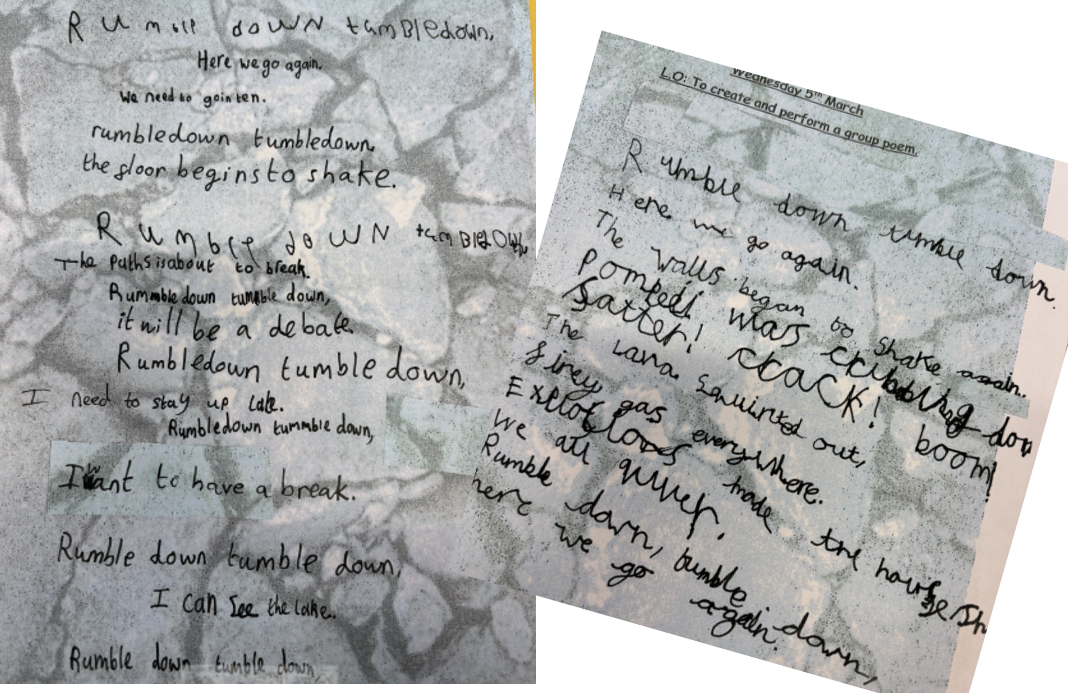 Rumble down tumBledown,
Here we go again.
We need to go in ten.
rumbledown tumbledown.
the floor begins to shake.
Rumble down tumBledown,
The paths is about to break.
Rummble down tummble down,
it will be a debate.
Rumbledown tumble down,
I need to stay up late.
Rumbledown tummble down,
I want to have a break.
Rumble down tumble down,
I can See the Lake.
Rumble down tumble down,
Wednesday 5th March
L.O: To create and perform a group poem.
Rumble down tumble down.
Here we go again.
The walls began to shake again.
Pompeii was
Satter! crack! boom!
The Lava Squirted out,
firey gas everywhere.
made the house
we all quiver.
Rumble down, tumble down,
here we go again.